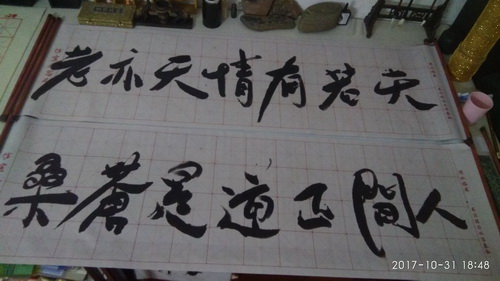 天若有情天亦老
人間正道是滄桑
2017-10-31 18:48